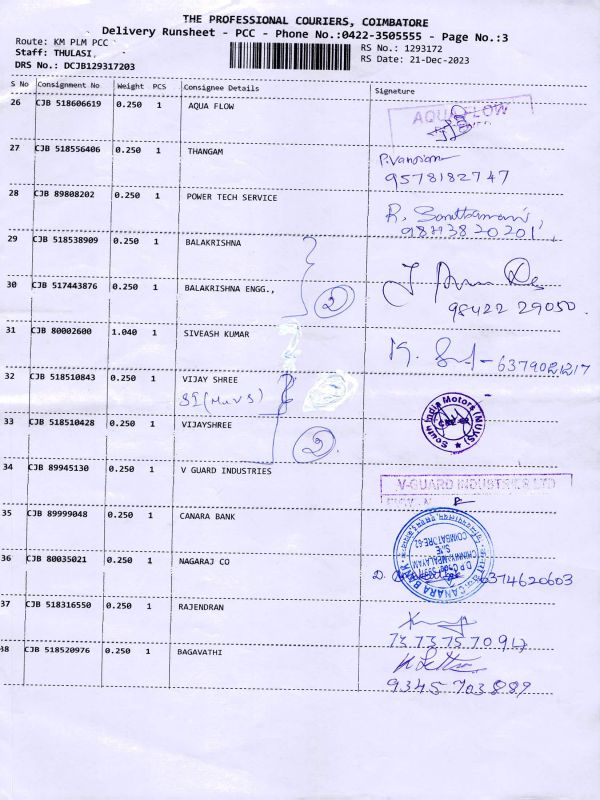 THE PROFESSIONAL COURIERS, COIMBATORE
Delivery Runsheet - PCC - Phone No.:0422-3505555 - Page No.:3
Route: KM PLM PCC
Staff: THULASI,
DRS No.: DCJB129317203
RS No.: 1293172
RS Date: 21-Dec-2023
S No Consignment No Weight PCS Consignee Details Signature
26 CJB 518606619 0.250 1 AQUA FLOW AQUA FLOW
27 CJB 518556406 0.250 1 THANGAM
9578182747
28 CJB 89808202 0.250 1 POWER TECH SERVICE R.
29 CJB 518538909 0.250 1 BALAKRISHNA
30 CJB 517443876 0.250 1 BALAKRISHNA ENGG.,
2
98422 29050.
31 CJB 80002600 1.040 1 SIVEASH KUMAR
32 CJB 518510843 0.250 1 VIJAY SHREE
SI (MUVS)
South India Motors (MUVS)
33 CJB 518510428 0.250 1 VIJAYSHREE
2.
34 CJB 89945130 0.250 1 V GUARD INDUSTRIES V-GUARD INDUSTRIES LTD
35 CJB 89999048 0.250 1 CANARA BANK
CANARA BANK
COIMBATORE-62
36 CJB 80035021 0.250 1 NAGARAJ CO D. 6374620603
37 CJB 518316550 0.250 1 RAJENDRAN
38 CJB 518520976 0.250 1 BAGAVATHI
9345703889